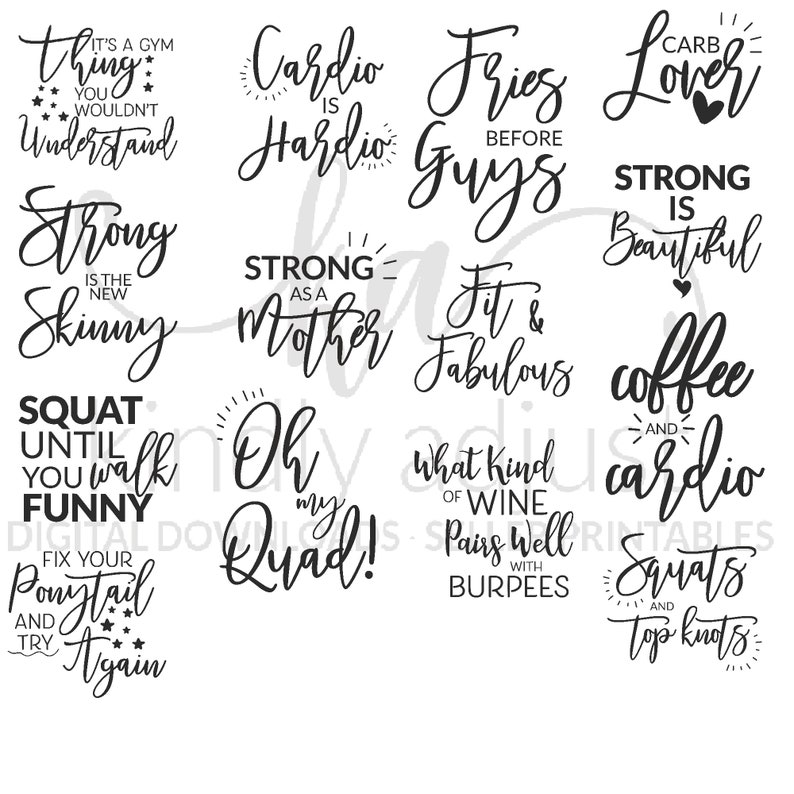 IT'S A GYM
Thing
YOU
WOULDN'T
Understand
Strong
IS THE
NEW
Skinny
SQUAT
UNTIL
YOU walk
FUNNY
FIX YOUR
Ponytail
AND
TRY
Again
Cardio
IS
Hardio
STRONG
AS A
Mother
Oh
my
Quad!
Fries
BEFORE
Guys
Fit &
Fabulous
What Kind
OF WINE
Pairs Well
WITH
BURPEES
CARB
Lover
STRONG
IS
Beautiful
coffee
AND
cardio
Squats
AND
Top knots
ka
kindly adjust
DIGITAL DOWNLOADS
PRINTABLES